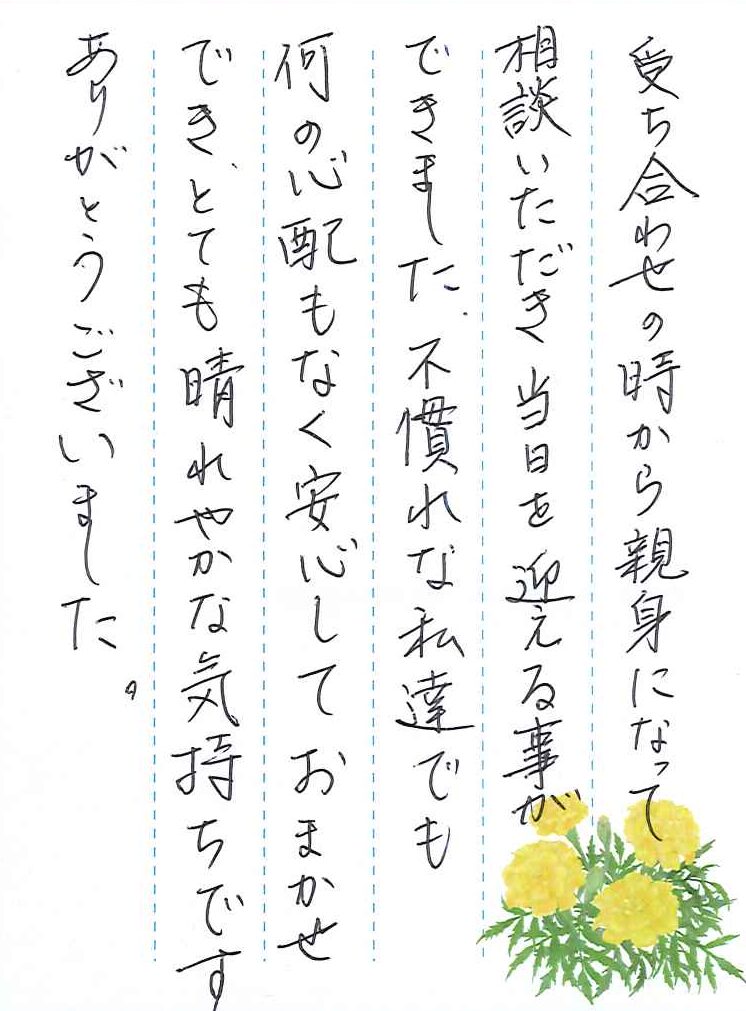 受ち合わせの時から親身になって
相談いただき当日を迎える事が
できました。不慣れな私達でも
何の心配もなく安心しておまかせ
でき、とても晴れやかな気持ちです
ありがとうございました。